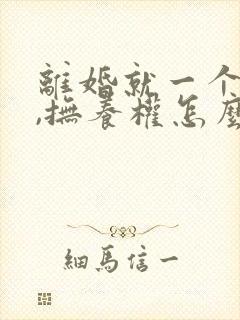 離婚就一个
,撫養權怎麼
細馬信一